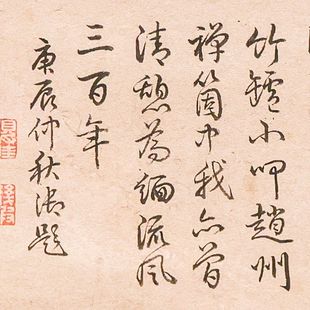 竹鑪小呷趙州
禪箇中我亦曾
清憩為緬流風
三百年
庚辰仲秋御題